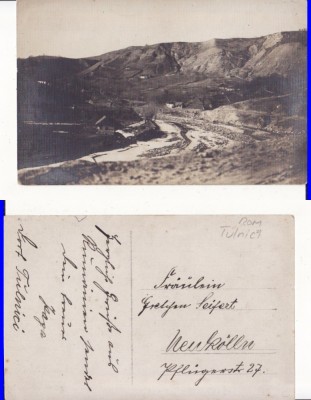 Rom
Tulnici
Herzliche Grüße aus
Rumänien sendet
Dein treuer
Dorf Tulnici
Fräulein
Gretchen Seifert
Neukölln
Pflügerstr. 27.